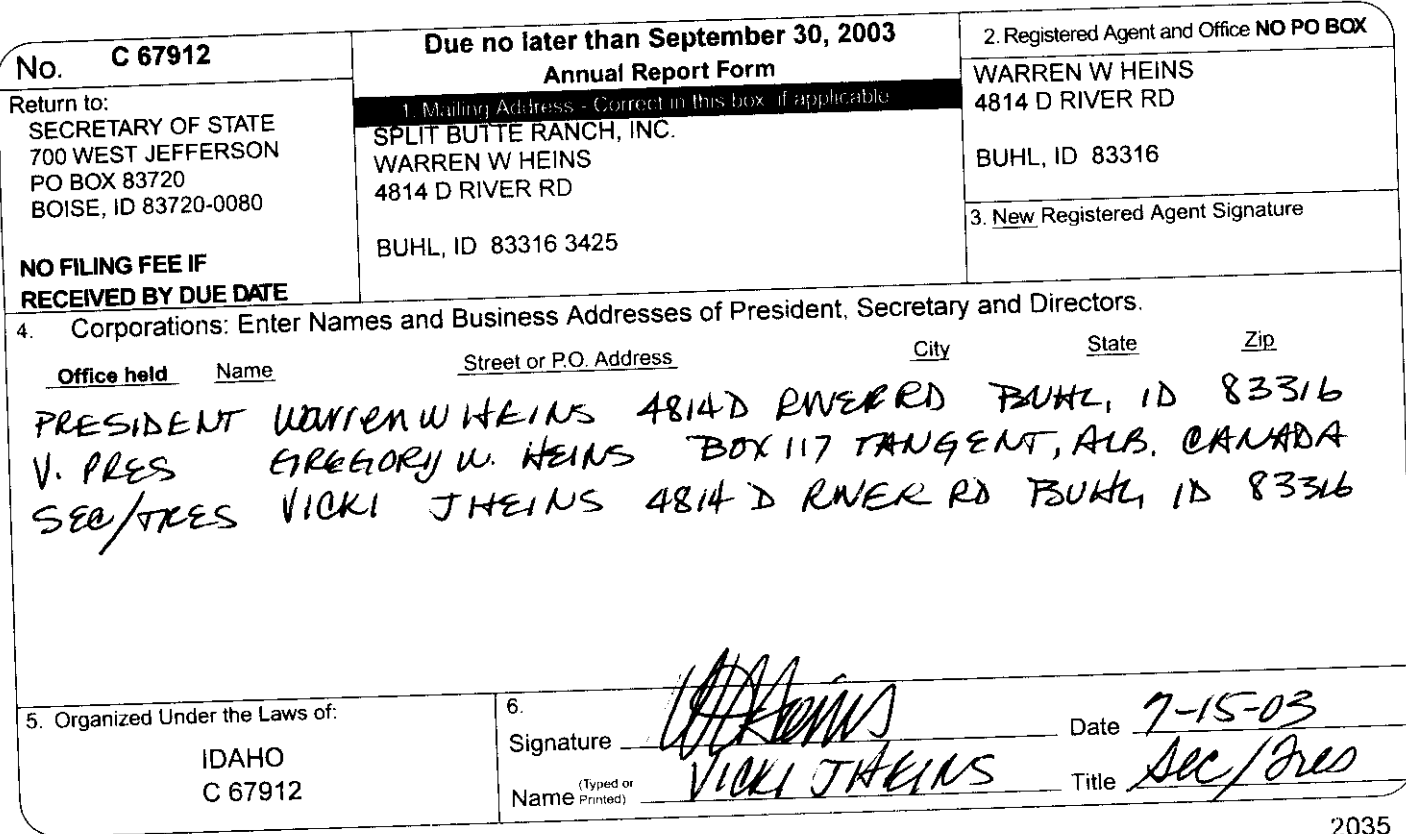 No. C 67912
Return to:
SECRETARY OF STATE
700 WEST JEFFERSON
PO BOX 83720
BOISE, ID 83720-0080
NO FILING FEE IF
RECEIVED BY DUE DATE
Due no later than September 30, 2003
Annual Report Form
1. Mailing Address - Correct in this box if applicable
SPLIT BUTTE RANCH, INC.
WARREN W HEINS
4814 D RIVER RD
BUHL, ID 83316 3425
2. Registered Agent and Office NO PO BOX
WARREN W HEINS
4814 D RIVER RD
BUHL, ID 83316
3. New Registered Agent Signature
4. Corporations: Enter Names and Business Addresses of President, Secretary and Directors.
Office held Name Street or P.O. Address City State Zip
PRESIDENT Warren W HEINS 4814 D RIVER RD BUHL, ID 83316
V. PRES GREGORY W. HEINS BOX 117 TANGENT, ALB. CANADA
SEC/TRES VICKI J HEINS 4814 D RIVER RD BUHL, ID 83316
5. Organized Under the Laws of:
IDAHO
C 67912
6.
Signature Heins Date 7-15-03
Name (Typed or Printed) VICKI J HEINS Title Sec/Tres
2035